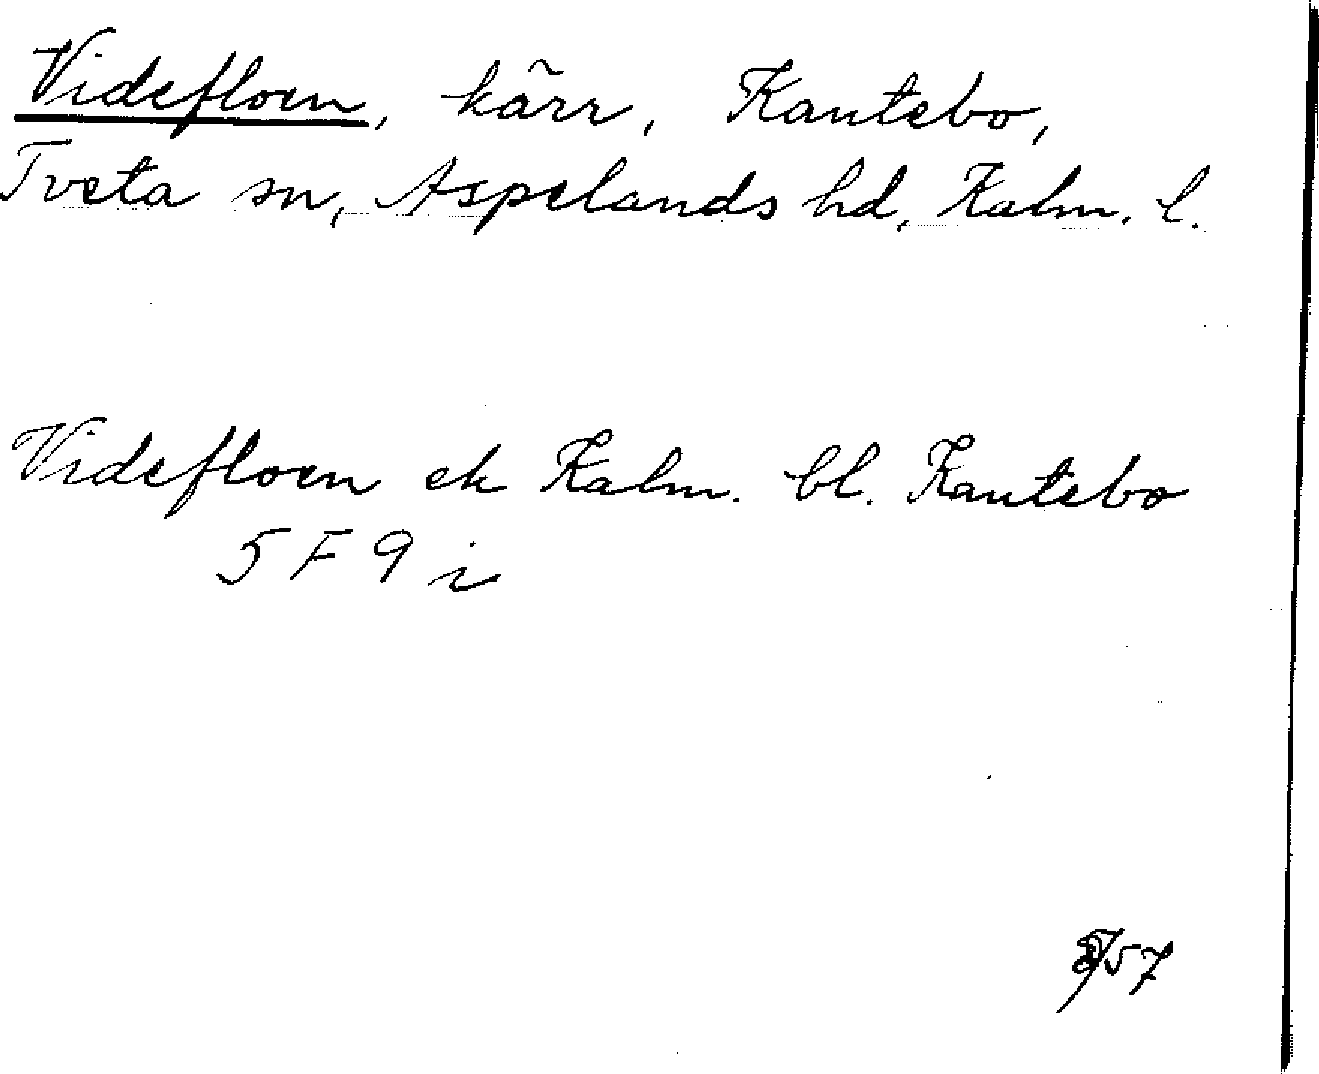 Videfloen, kärr, Kantebo,
Tveta sn, Aspelands hd, Kalm. l.
Videfloen ek Kalm. bl. Kantebo
5 F 9 i